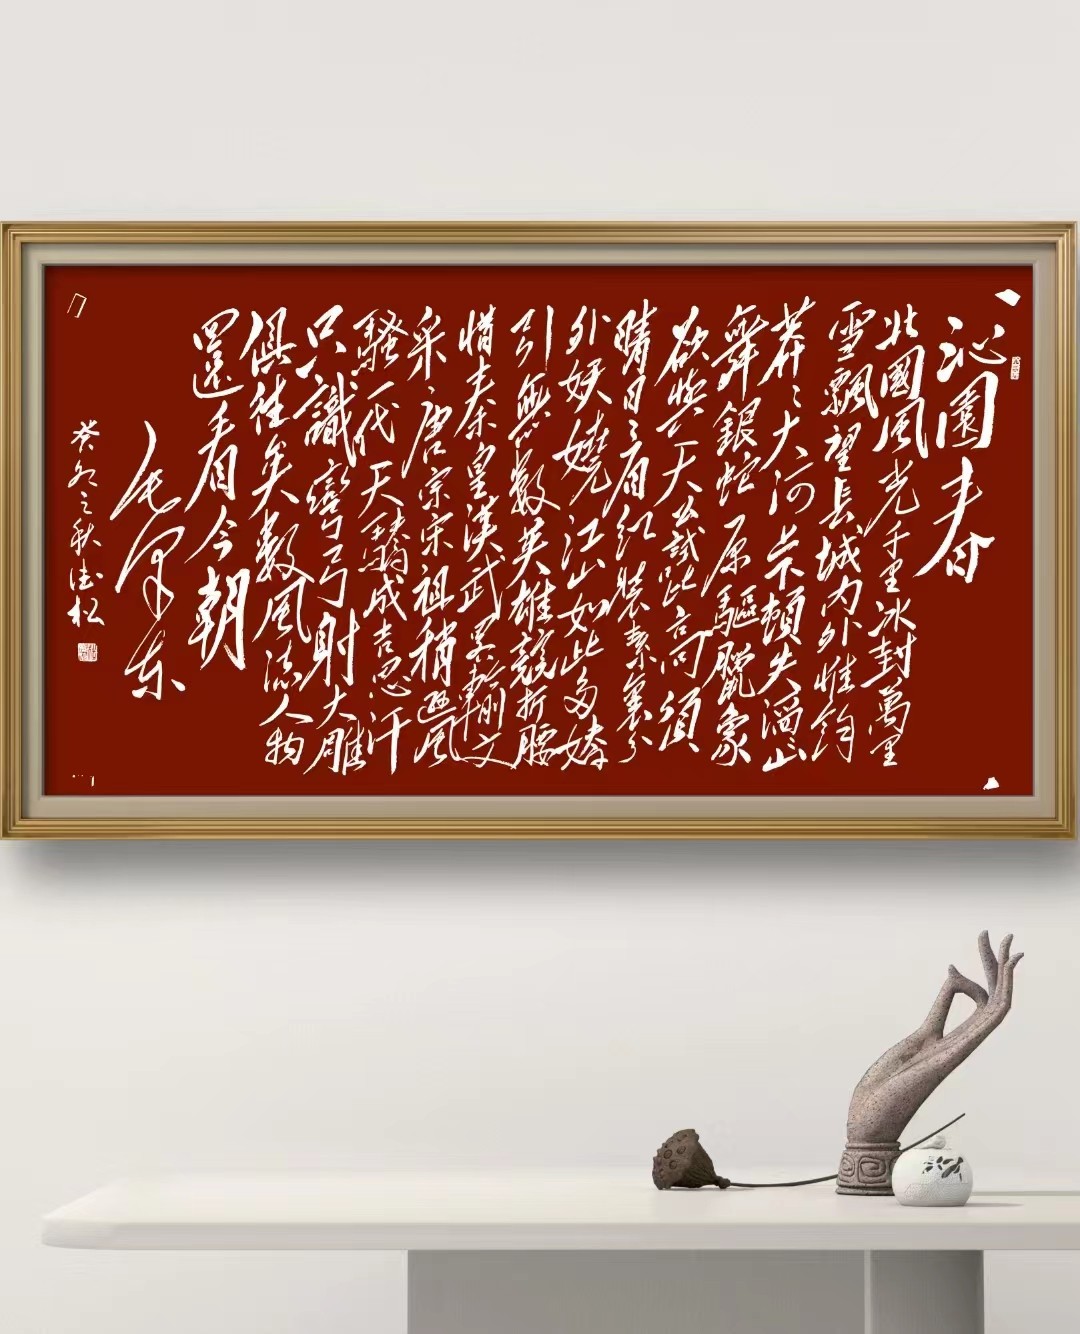 沁園春
北國風光千里冰封萬里
雪飄望長城内外惟餘
莽〻大河上下頓失滔〻山
舞銀蛇原驅臘象
欲與天公試比高須
晴日〻看紅裝素裹分
外妖嬈江山如此多嬌
引無數英雄競折腰
惜秦皇漢武略輸文
采〻唐宗宋祖稍遜風
騷一代天驕成吉思汗
只識彎弓射大雕
俱往矣數風流人物
還看今朝
毛澤東
癸卯之秋德松